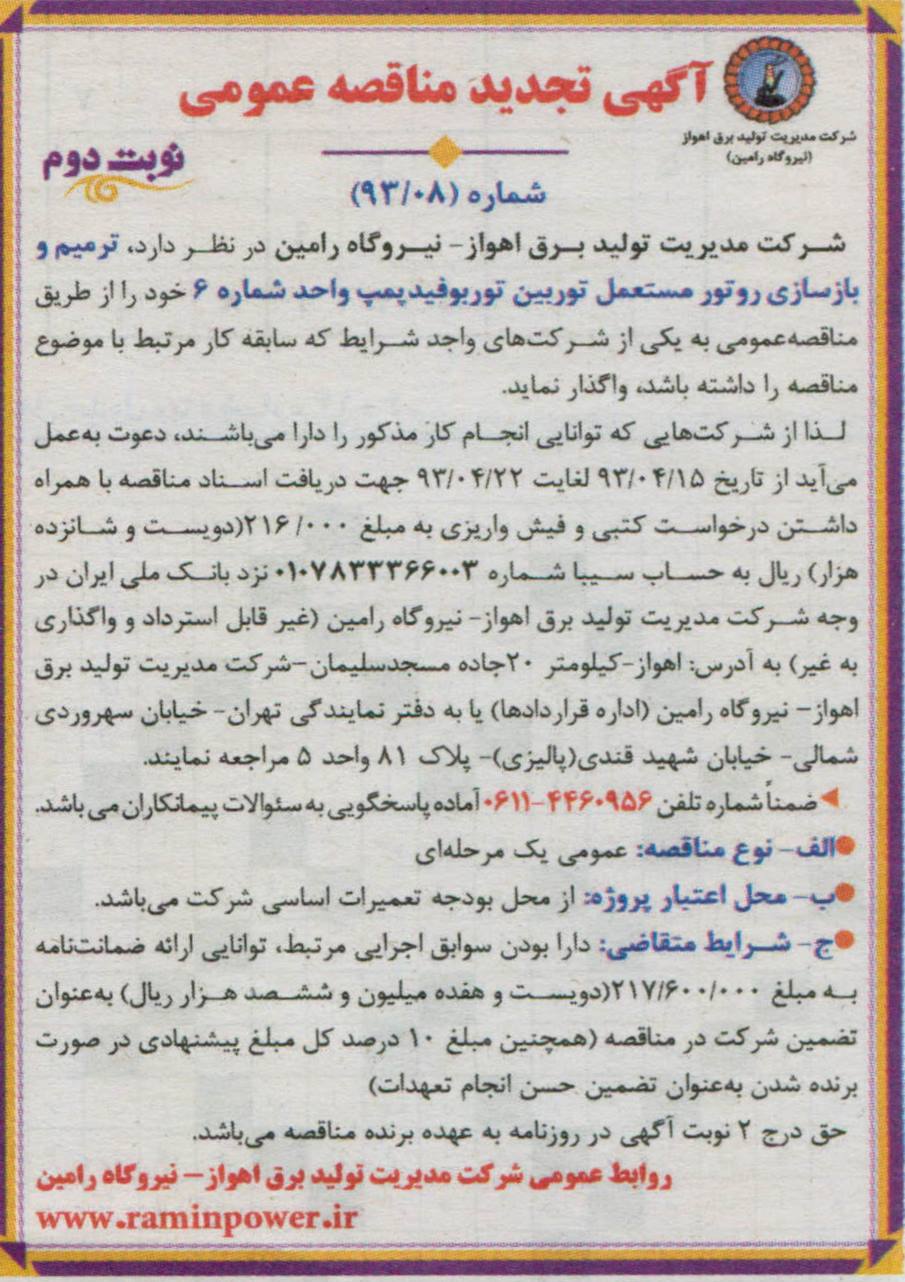 آگهی تجدید مناقصه عمومی
شرکت مدیریت تولید برق اهواز
(نیروگاه رامین)
نوبت دوم
شماره (۹۳/۰۸)
شرکت مدیریت تولید برق اهواز- نیروگاه رامین در نظر دارد، ترمیم و
بازسازی روتور مستعمل توربین توربوفیدپمپ واحد شماره ۶ خود را از طریق
مناقصه‌عمومی به یکی از شرکت‌های واجد شرایط که سابقه کار مرتبط با موضوع
مناقصه را داشته باشد، واگذار نماید.
لذا از شرکت‌هایی که توانایی انجام کار مذکور را دارا می‌باشند، دعوت به‌عمل
می‌آید از تاریخ ۹۳/۰۴/۱۵ لغایت ۹۳/۰۴/۲۲ جهت دریافت اسناد مناقصه با همراه
داشتن درخواست کتبی و فیش واریزی به مبلغ ۲۱۶/۰۰۰(دویست و شانزده
هزار) ریال به حساب سیبا شماره ۰۱۰۷۸۳۳۳۶۶۰۰۳ نزد بانک ملی ایران در
وجه شرکت مدیریت تولید برق اهواز- نیروگاه رامین (غیر قابل استرداد و واگذاری
به غیر) به آدرس: اهواز-کیلومتر ۲۰جاده مسجدسلیمان-شرکت مدیریت تولید برق
اهواز- نیروگاه رامین (اداره قراردادها) یا به دفتر نمایندگی تهران- خیابان سهروردی
شمالی- خیابان شهید قندی(پالیزی)- پلاک ۸۱ واحد ۵ مراجعه نمایند.
ضمناً شماره تلفن ۴۴۶۰۹۵۶-۰۶۱۱ آماده پاسخگویی به سئوالات پیمانکاران می باشد.
الف- نوع مناقصه: عمومی یک مرحله‌ای
ب- محل اعتبار پروژه: از محل بودجه تعمیرات اساسی شرکت می‌باشد.
ج- شرایط متقاضی: دارا بودن سوابق اجرایی مرتبط، توانایی ارائه ضمانت‌نامه
به مبلغ ۲۱۷/۶۰۰/۰۰۰(دویست و هفده میلیون و ششصد هزار ریال) به‌عنوان
تضمین شرکت در مناقصه (همچنین مبلغ ۱۰ درصد کل مبلغ پیشنهادی در صورت
برنده شدن به‌عنوان تضمین حسن انجام تعهدات)
حق درج ۲ نوبت آگهی در روزنامه به عهده برنده مناقصه می‌باشد.
روابط عمومی شرکت مدیریت تولید برق اهواز- نیروگاه رامین
www.raminpower.ir